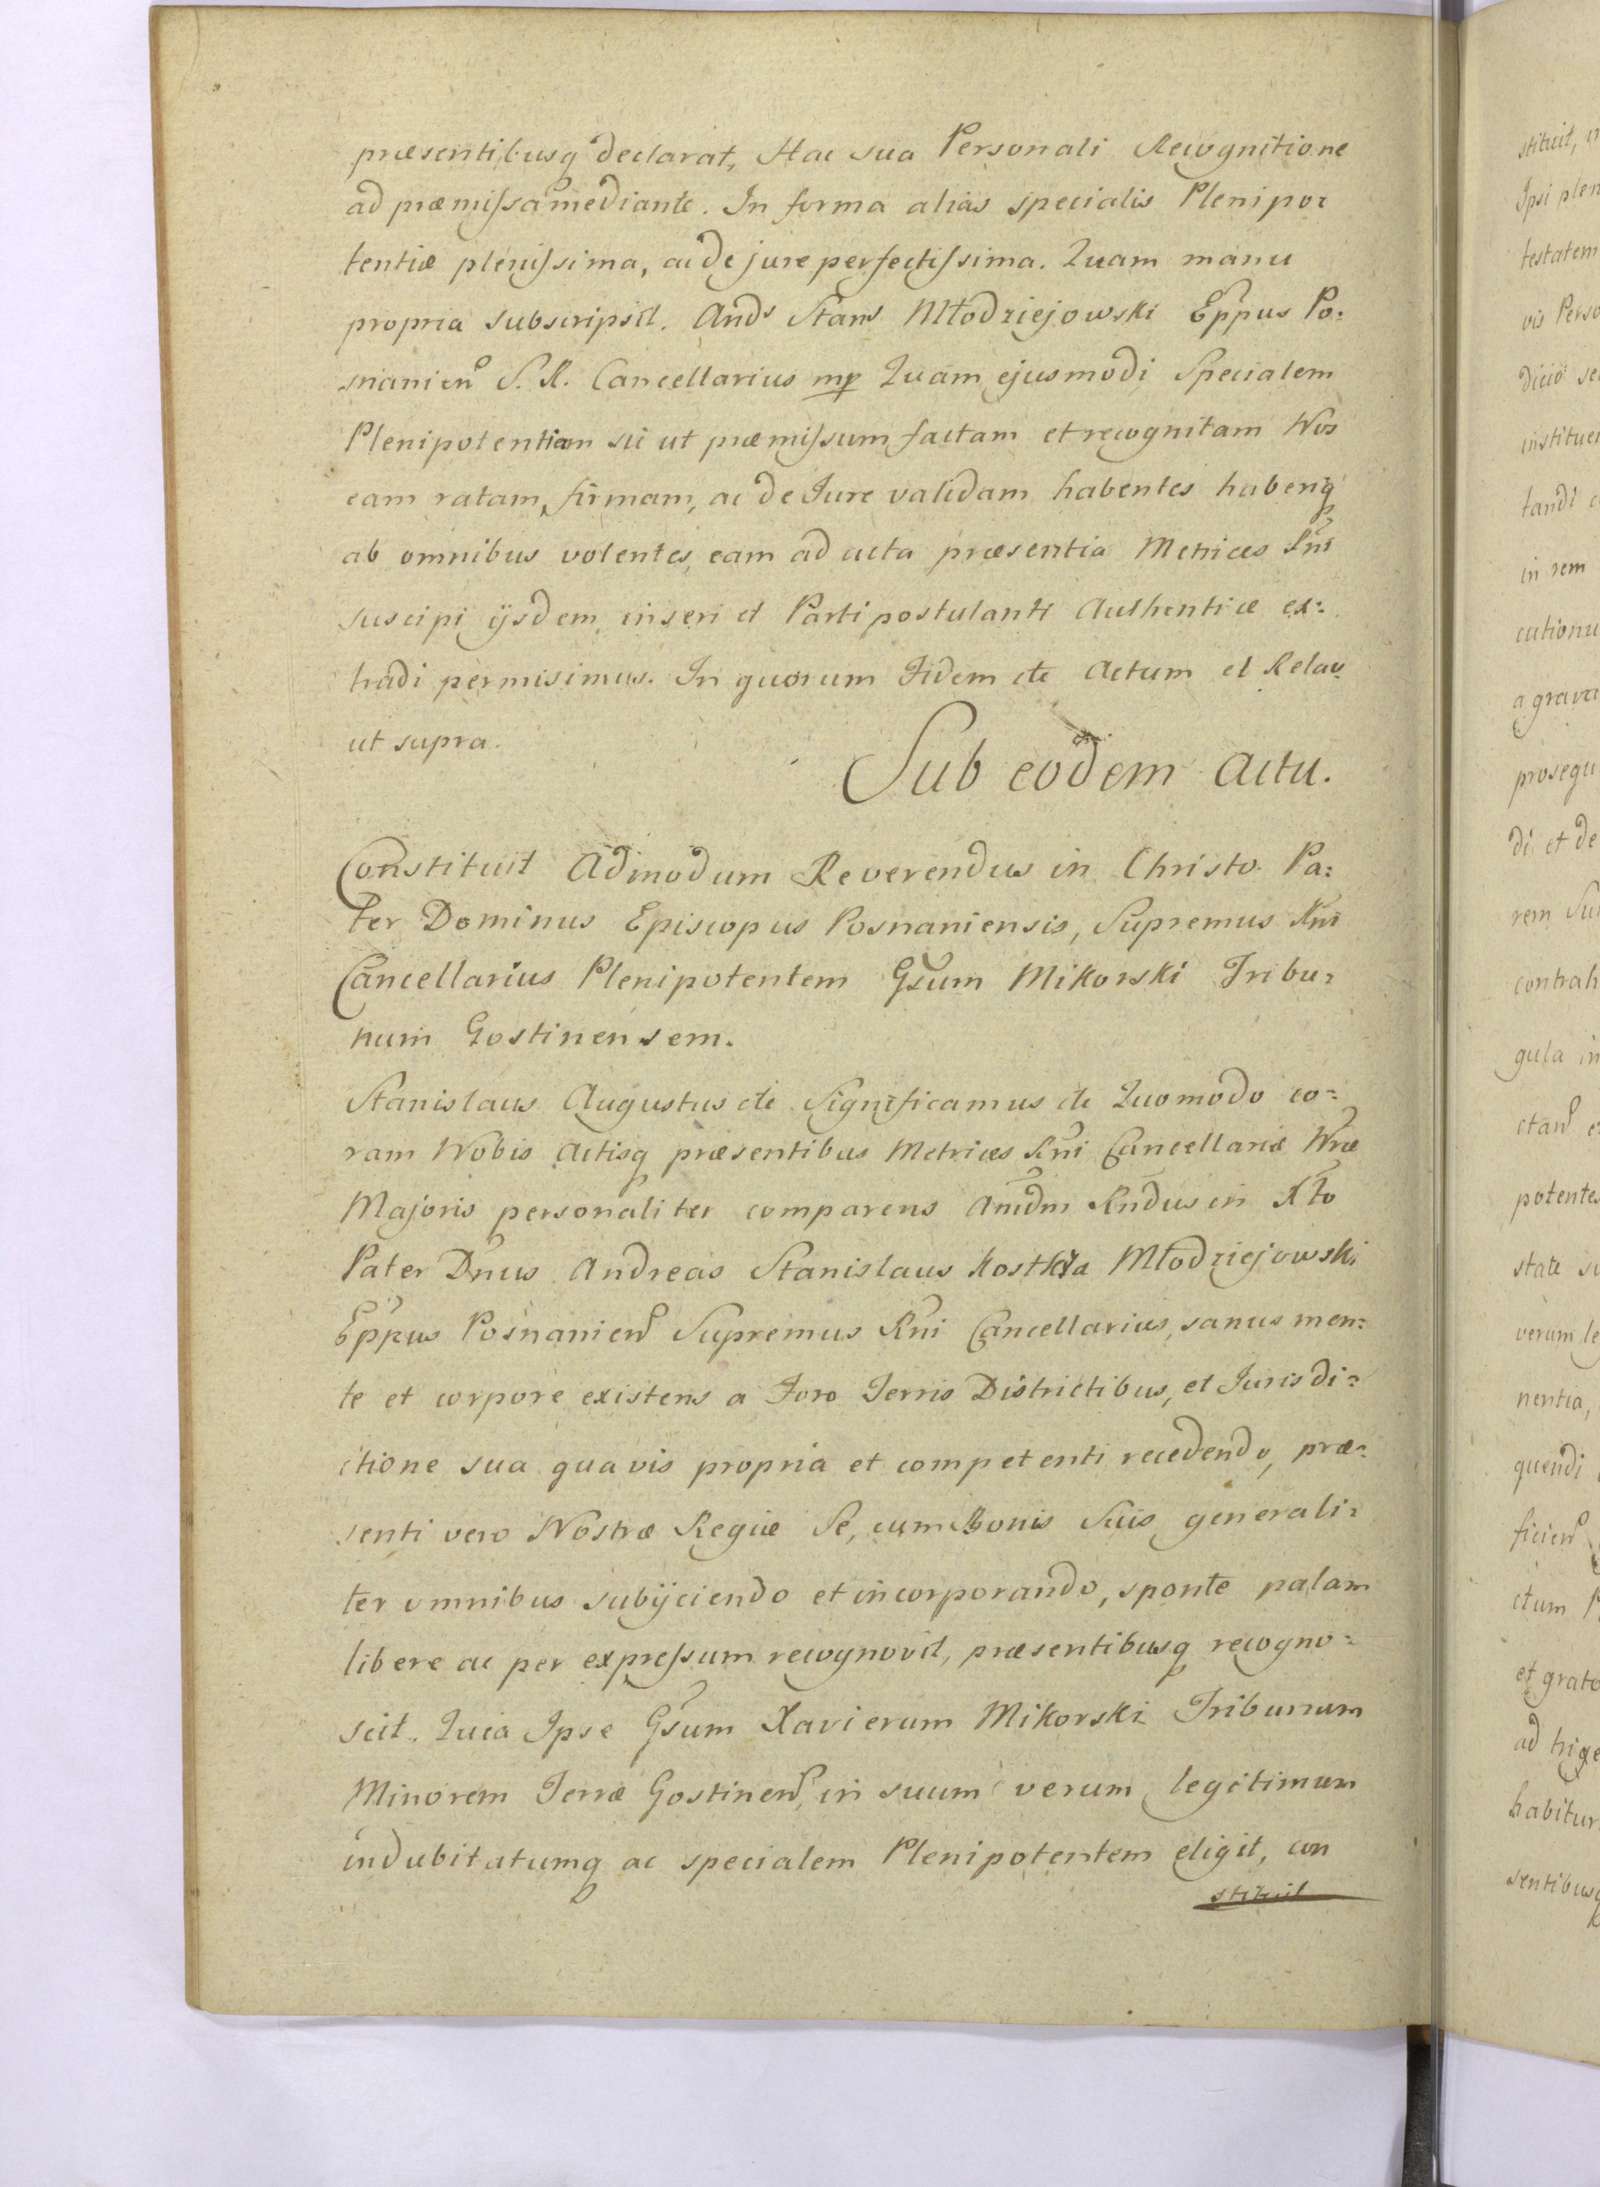 præsentibusq declarat, Hac sua Personali Recognitione
ad præmissa mediante. In forma alias specialis Plenipo:
tentiæ plenissima, ac de jure perfectissima. Quam manu
propria subscripsit. Ands Stans Młodziejowski Eppus Po:
snanien S. R. Cancellarius mp Quam ejusmodi Specialem
Plenipotentiam sic ut præmissum factam et recognitam Nos
eam ratam, firmam, ac de Jure validam habentes haberiq
ab omnibus volentes, eam ad acta præsentia Metrices Rni
suscipi ijsdem inseri et Parti postulanti Authenticæ ex:
tradi permisimus. In quorum Fidem etc Actum et Relao
ut supra.
Sub eodem Actu.
Constituit Admodum Reverendus in Christo Pa:
ter Dominus Episcopus Posnaniensis, Supremus Rni
Cancellarius Plenipotentem Gsum Mikorski Tribu:
num Gostinensem.
Stanislaus Augustus etc Significamus etc Quomodo co:
ram Nobis Actisq præsentibus Metrices Rni Cancellariæ Nræ
Majoris personaliter comparens Amdm Rndus in Xto
Pater Dnus Andreas Stanislaus Kostka Młodziejowski
Eppus Posnanien Supremus Rni Cancellarius, sanus men:
te et corpore existens a Foro Terris Districtibus, et Jurisdi:
ctione sua quavis propria et competenti recedendo, præ:
senti vero Nostræ Regiæ Se, cum Bonis Suis generali:
ter omnibus subijciendo et incorporando, sponte palam
libere ac per expressum recognovit, præsentibusq recogno:
scit. Quia Ipse Gsum Xavierum Mikorski Tribunum
Minorem Terræ Gostinen, in suum verum legitimum
indubitatumq ac specialem Plenipotentem eligit, con
stituit